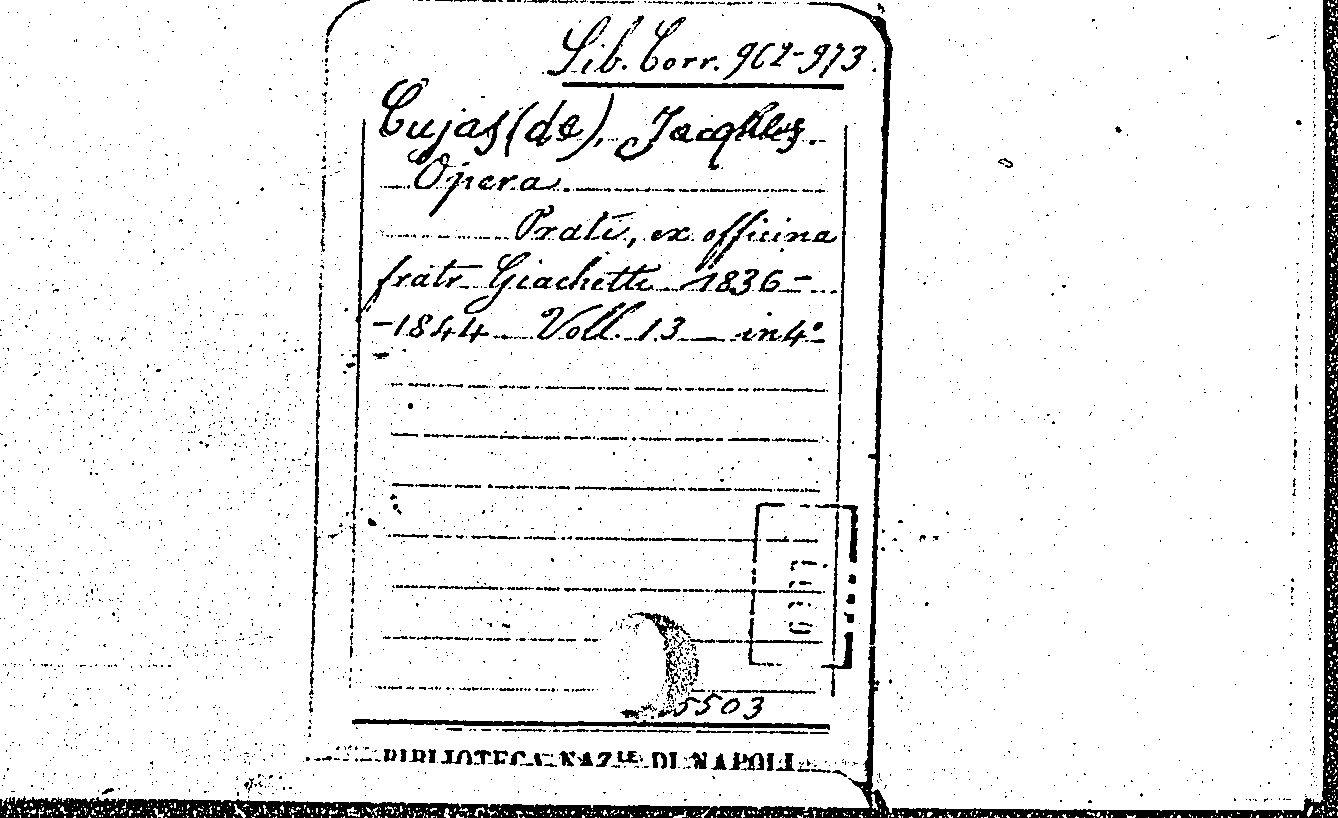 Lib. Corr. 962-973.
Cujas (de), Jacques.
Opera.
Prati, ex officina
fratr. Giachetti 1836-
-1844 Voll. 13 in 4º
5503
BIBLIOTECA NAZLE DI NAPOLI